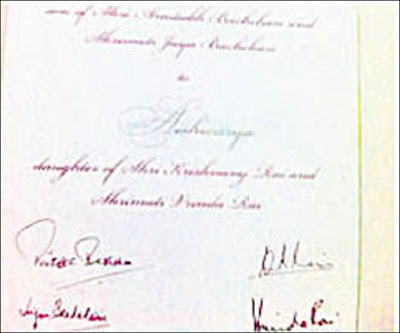 son of Shri Amitabh Bachchan and
Shrimati Jaya Bachchan
to
Aishwarya
daughter of Shri Krishnaraj Rai and
Shrimati Vrinda Rai
Jaya Bachchan